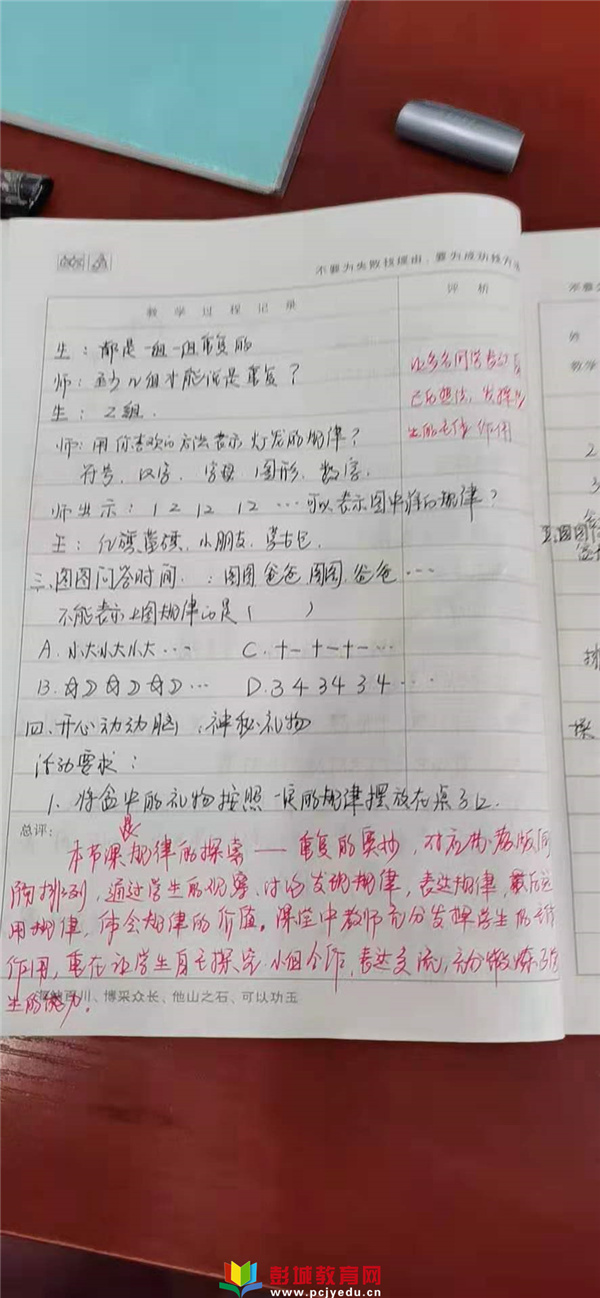 不要为失败找理由，要为成功找方
教 学 过 程 记 录
评 析
生：都是一组一组重复的
师：至少几组才能说是重复？
生：2组.
师：用你喜欢的方法表示灯笼的规律？
符号、汉字、字母、图形、数字.
师出示：12 12 12 …可以表示图中谁的规律？
生：小朋友、蒙古包.
让多名同学表达自
己的想法，发挥学
生的主体作用
三.图图问答时间：图图 爸爸 图图 爸爸…
不能表示上图规律的是（ ）
A.小大小大小大… C.十一十一十一…
B.☆☽☆☽☆☽… D.3 4 3 4 3 4…
四.开心动动脑：神秘礼物
活动要求：
1. 将盒中的礼物按照一定的规律摆放在桌子上.
总评：
本节课是规律的探索——重复的奥妙，对应苏教版间
隔排列，通过学生的观察、讨论发现规律，表达规律，最后运
用规律，体会规律的价值。课堂中教师充分发挥学生的主体
作用，重在让学生自主探究、小组合作、表达交流，充分锻炼了学
生的能力。
百川、博采众长、他山之石、可以功玉
教学
彭城教育网
www.pcjyedu.cn